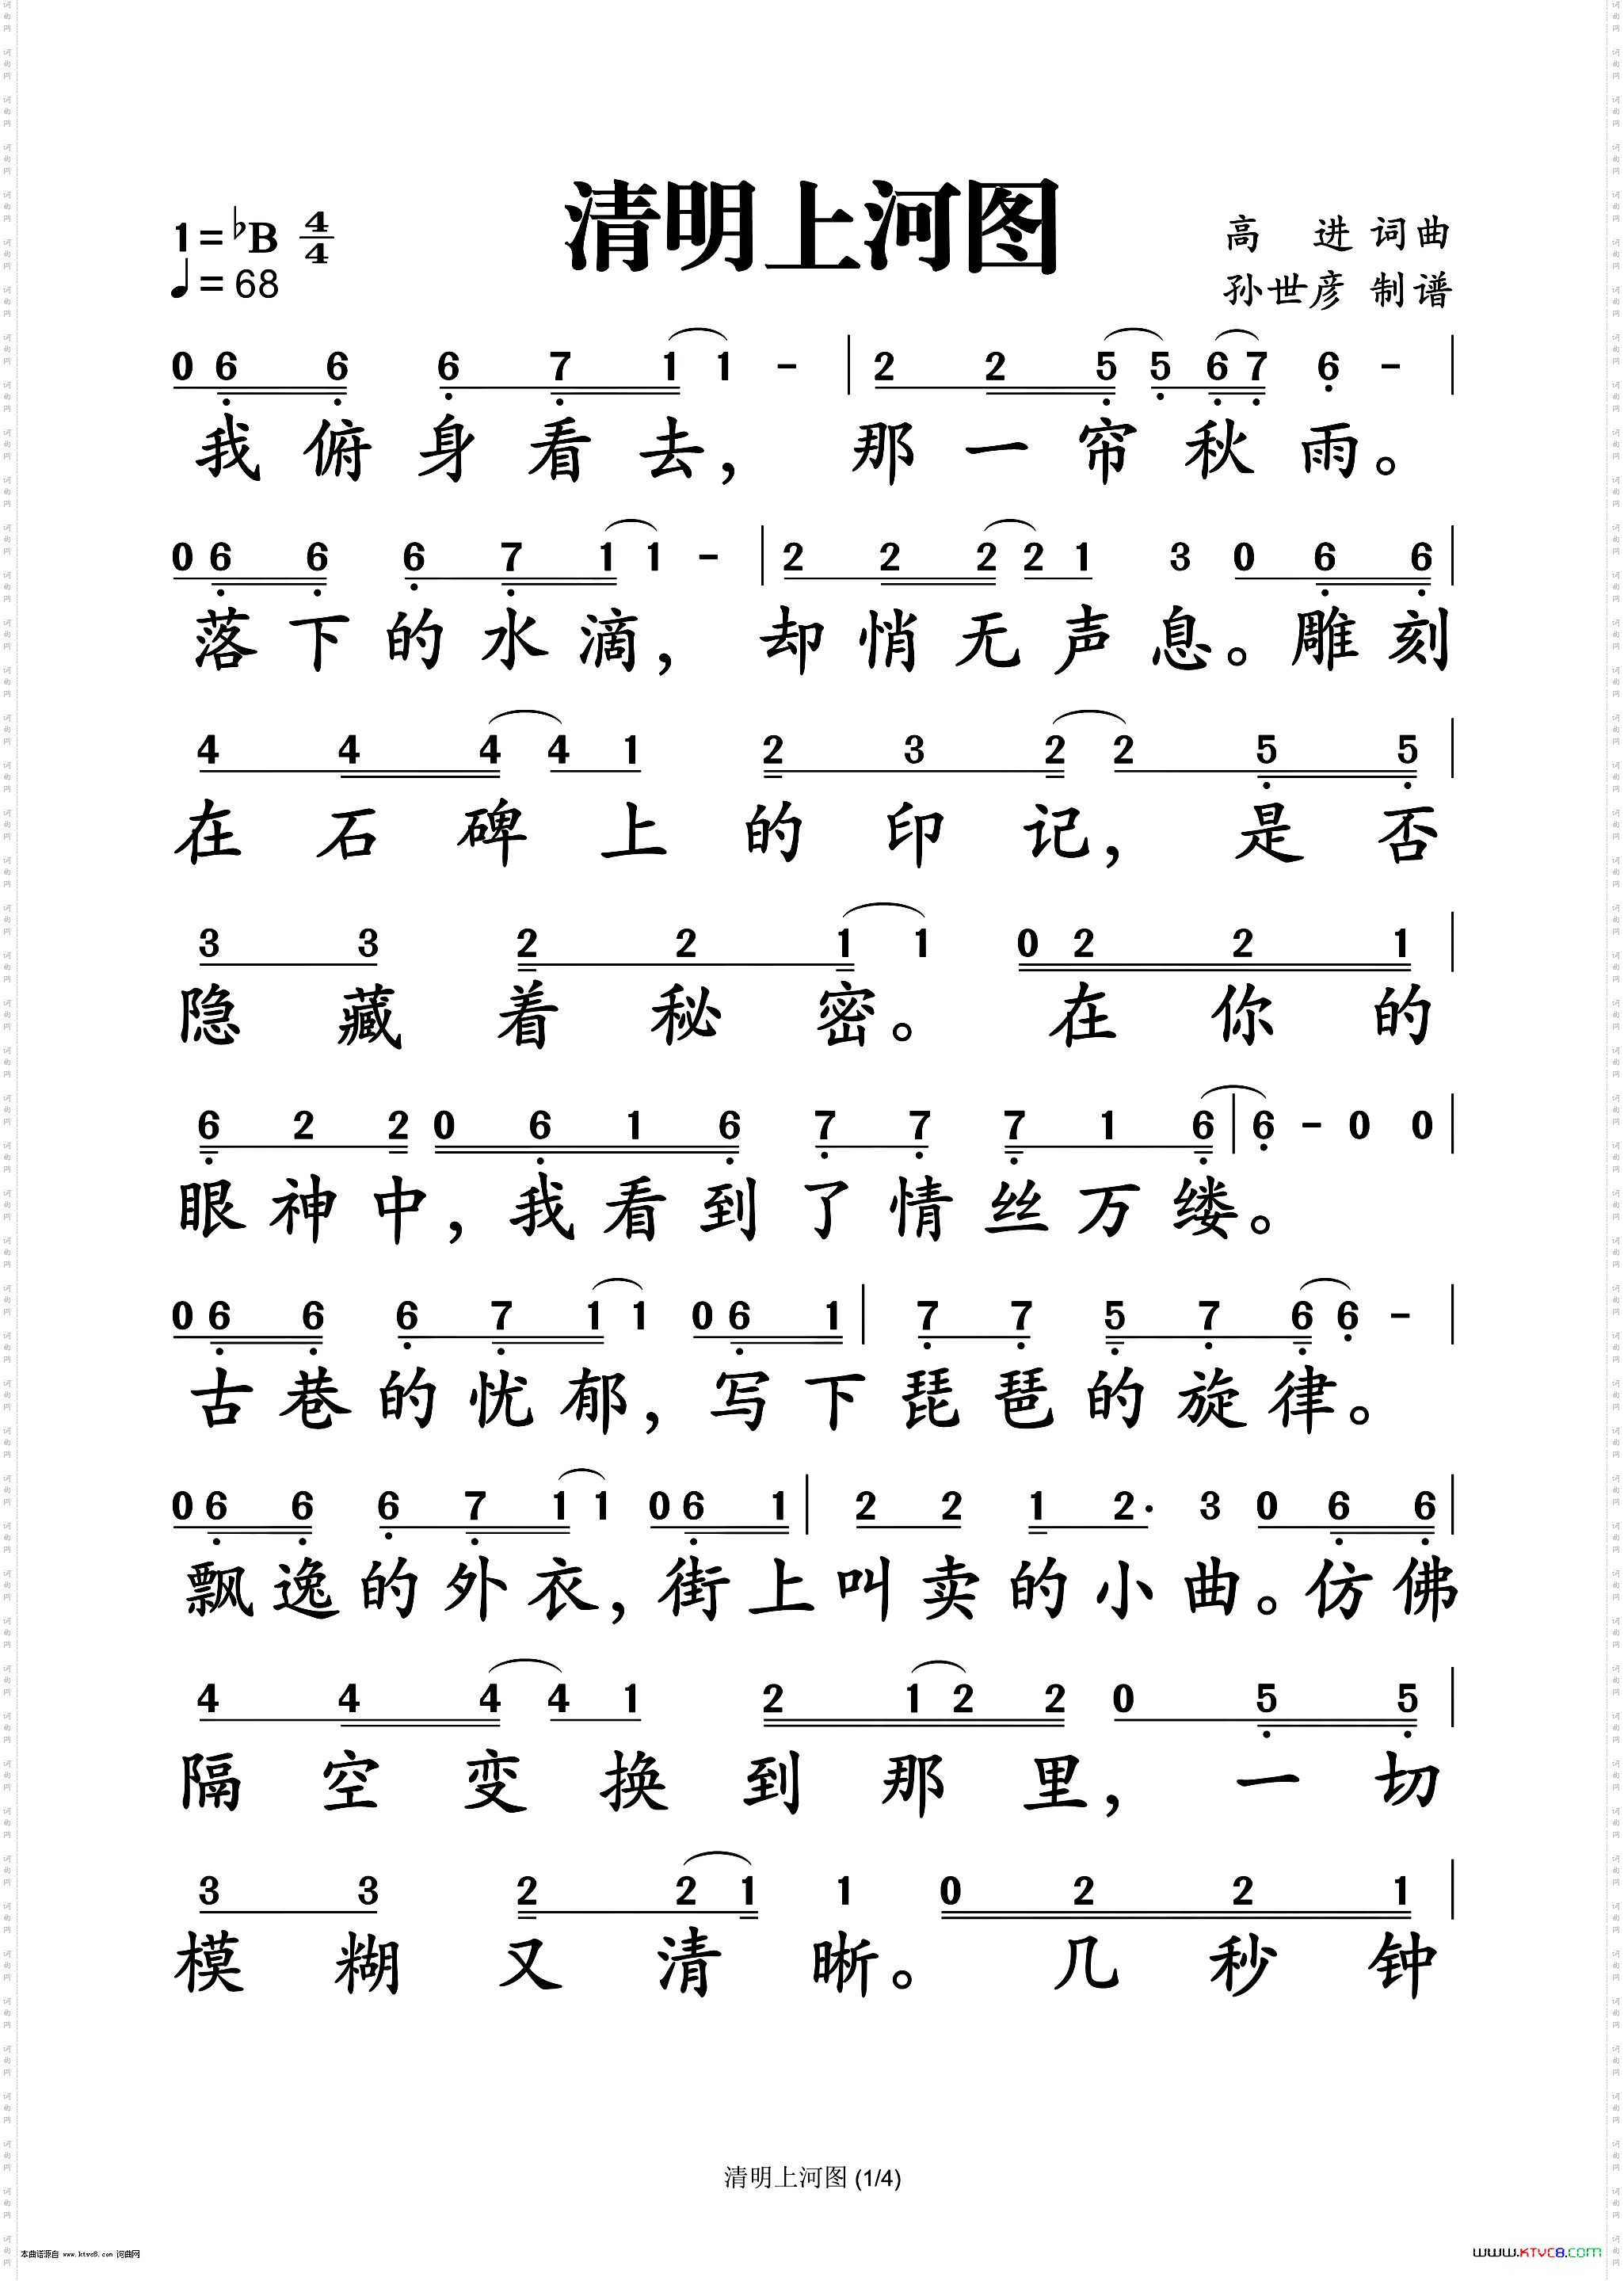 清明上河图
1=♭B 4/4
♩=68
高 进 词曲
孙世彦 制谱
0 6 6 6 7 1 1 - | 2 2 5 5 6 7 6 - |
我俯身看去，那一帘秋雨。
0 6 6 6 7 1 1 - | 2 2 2 2 1 3 0 6 6 |
落下的水滴，却悄无声息。雕刻
4 4 4 4 1 2 3 2 2 5 5 |
在石碑上的印记，是否
3 3 2 2 1 1 0 2 2 1 |
隐藏着秘密。在你的
6 2 2 0 6 1 6 7 7 7 1 6 | 6 - 0 0 |
眼神中，我看到了情丝万缕。
0 6 6 6 7 1 1 0 6 1 | 7 7 5 7 6 6 - |
古巷的忧郁，写下琵琶的旋律。
0 6 6 6 7 1 1 0 6 1 | 2 2 1 2· 3 0 6 6 |
飘逸的外衣，街上叫卖的小曲。仿佛
4 4 4 4 1 2 1 2 2 0 5 5 |
隔空变换到那里，一切
3 3 2 2 1 1 0 2 2 1 |
模糊又清晰。几秒钟
清明上河图 (1/4)
本曲谱源自 www.ktvc8.com 词曲网
www.KTVC8.com